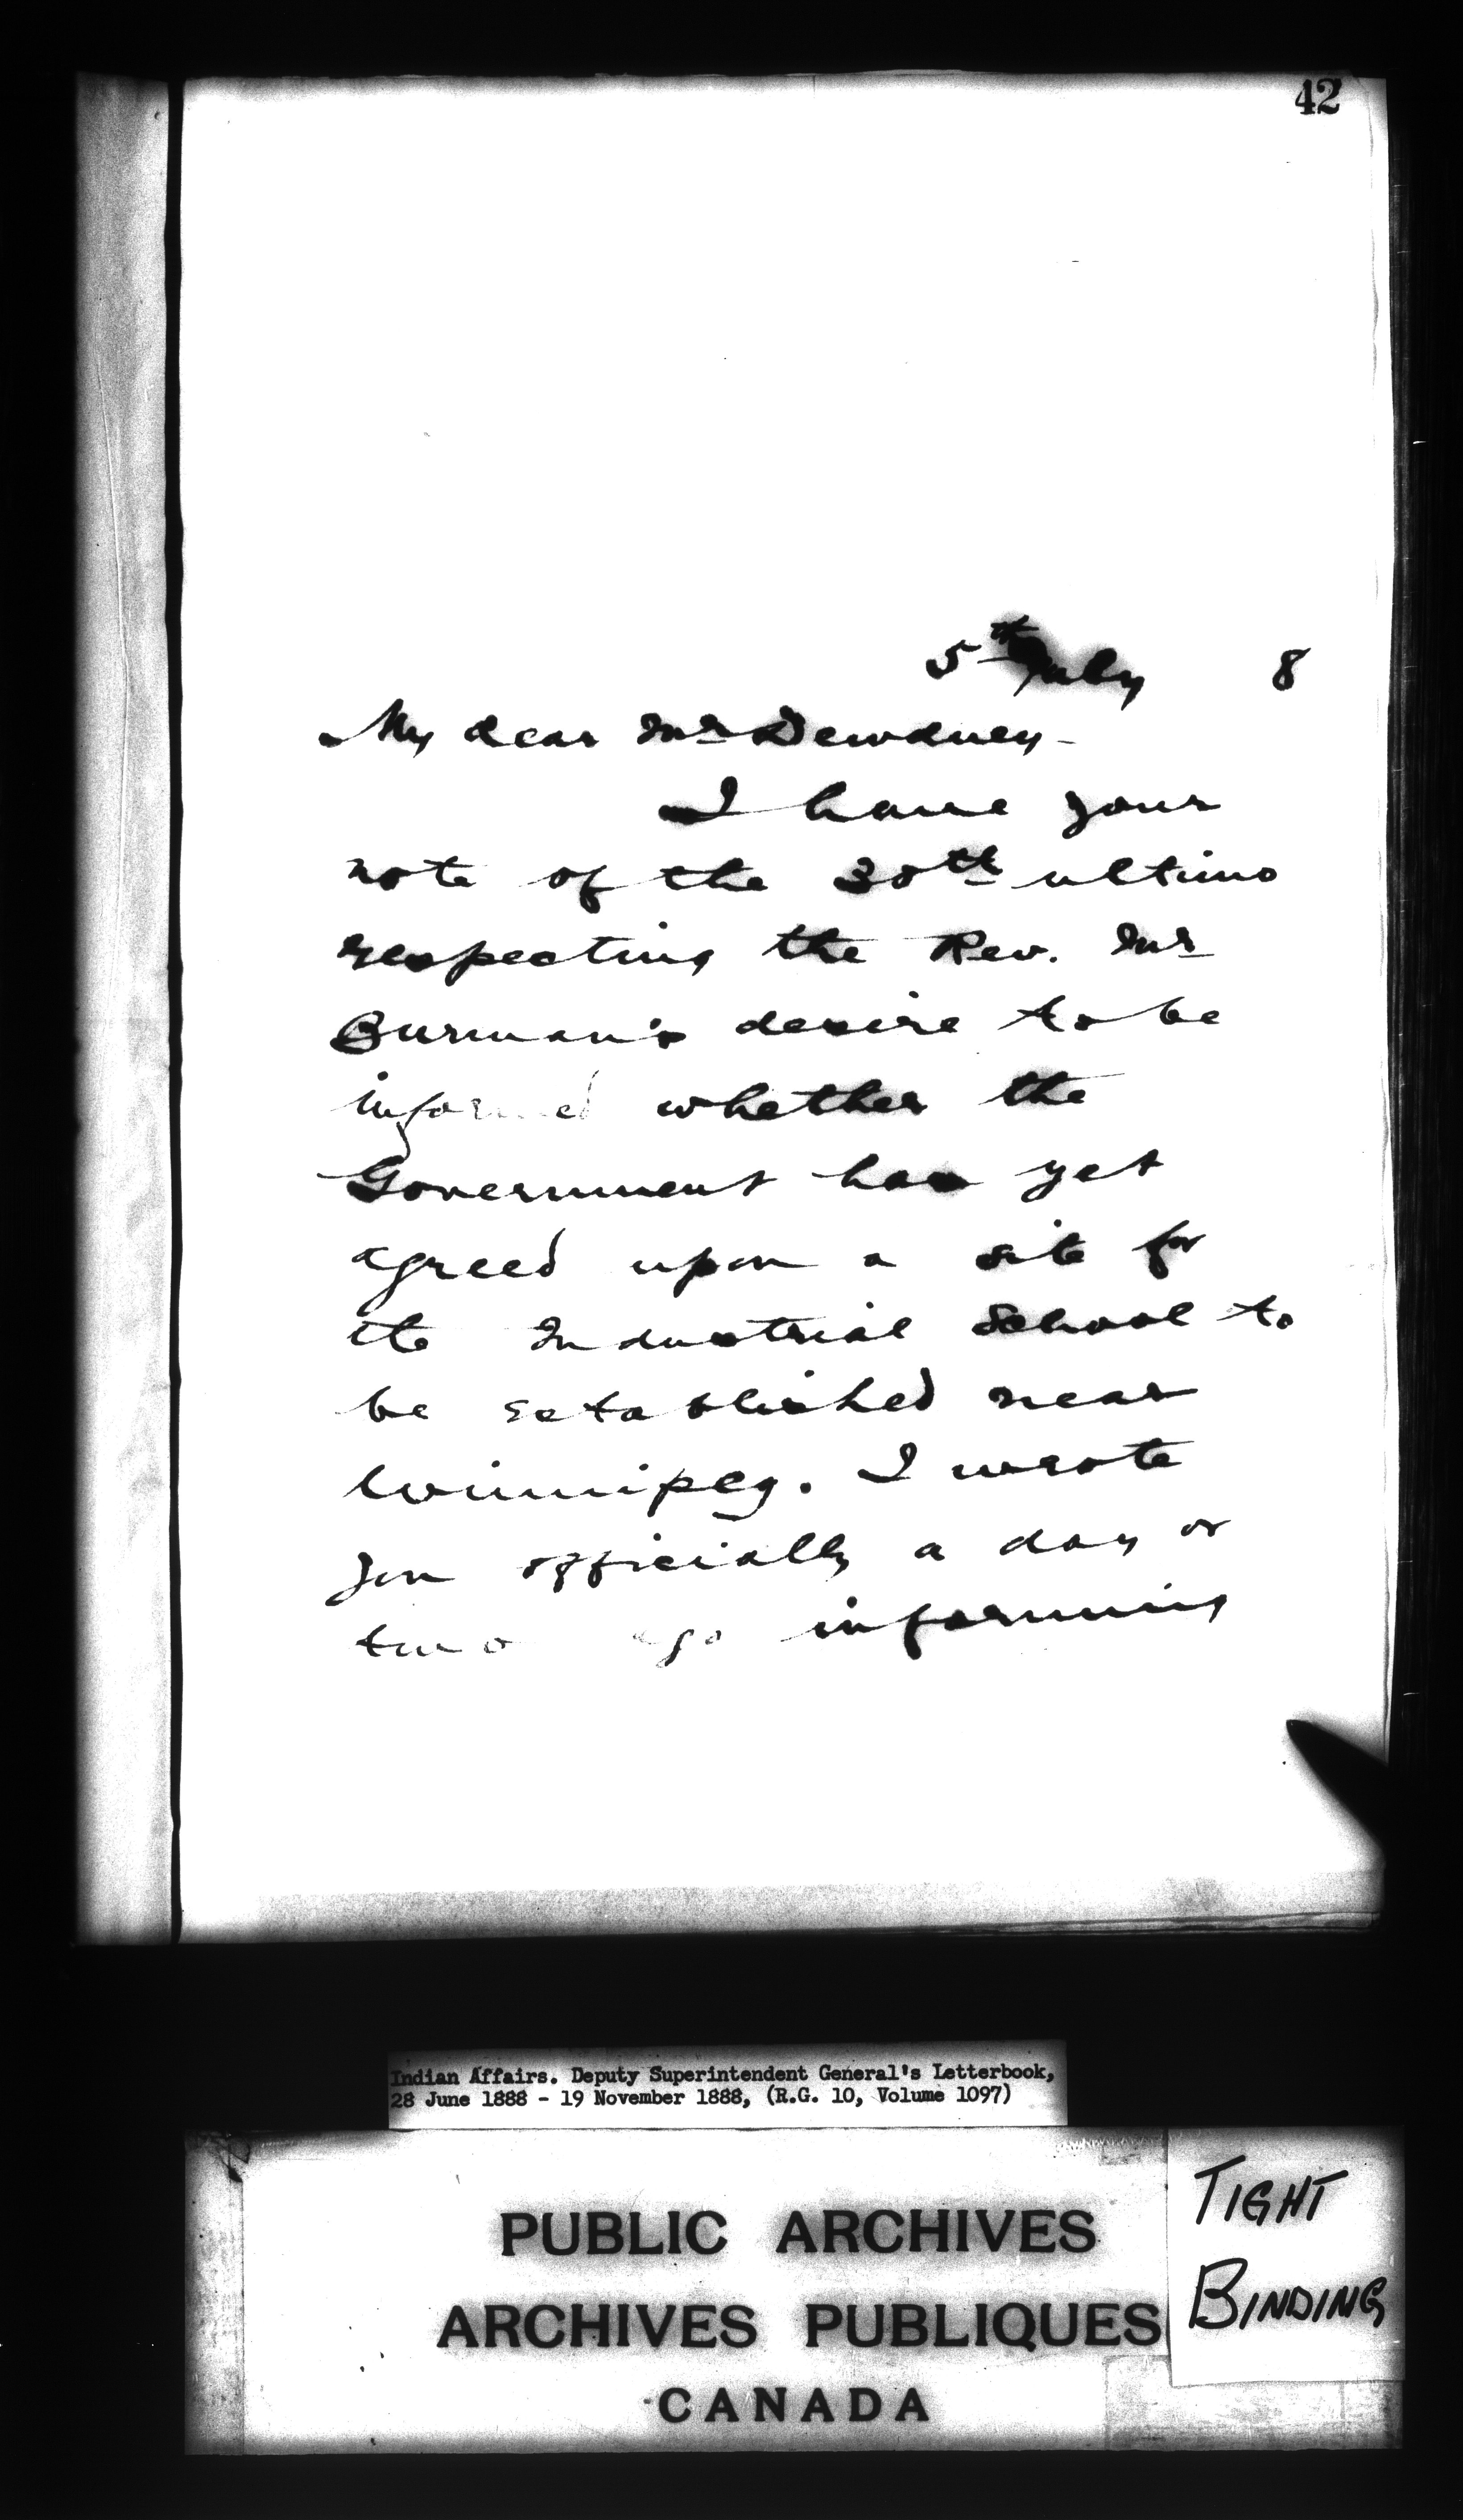 42
5th July 8
My dear Mr Dewdney -
I have your
note of the 30th ultimo
respecting the Rev. Mr
Burman's desire to be
informed whether the
Government has yet
agreed upon a site for
the Industrial School to
be established near
Winnipeg. I wrote
you officially a day or
two ago informing
Indian Affairs. Deputy Superintendent General's Letterbook,
28 June 1888 - 19 November 1888, (R.G. 10, Volume 1097)
PUBLIC ARCHIVES
ARCHIVES PUBLIQUES
CANADA
TIGHT
BINDING